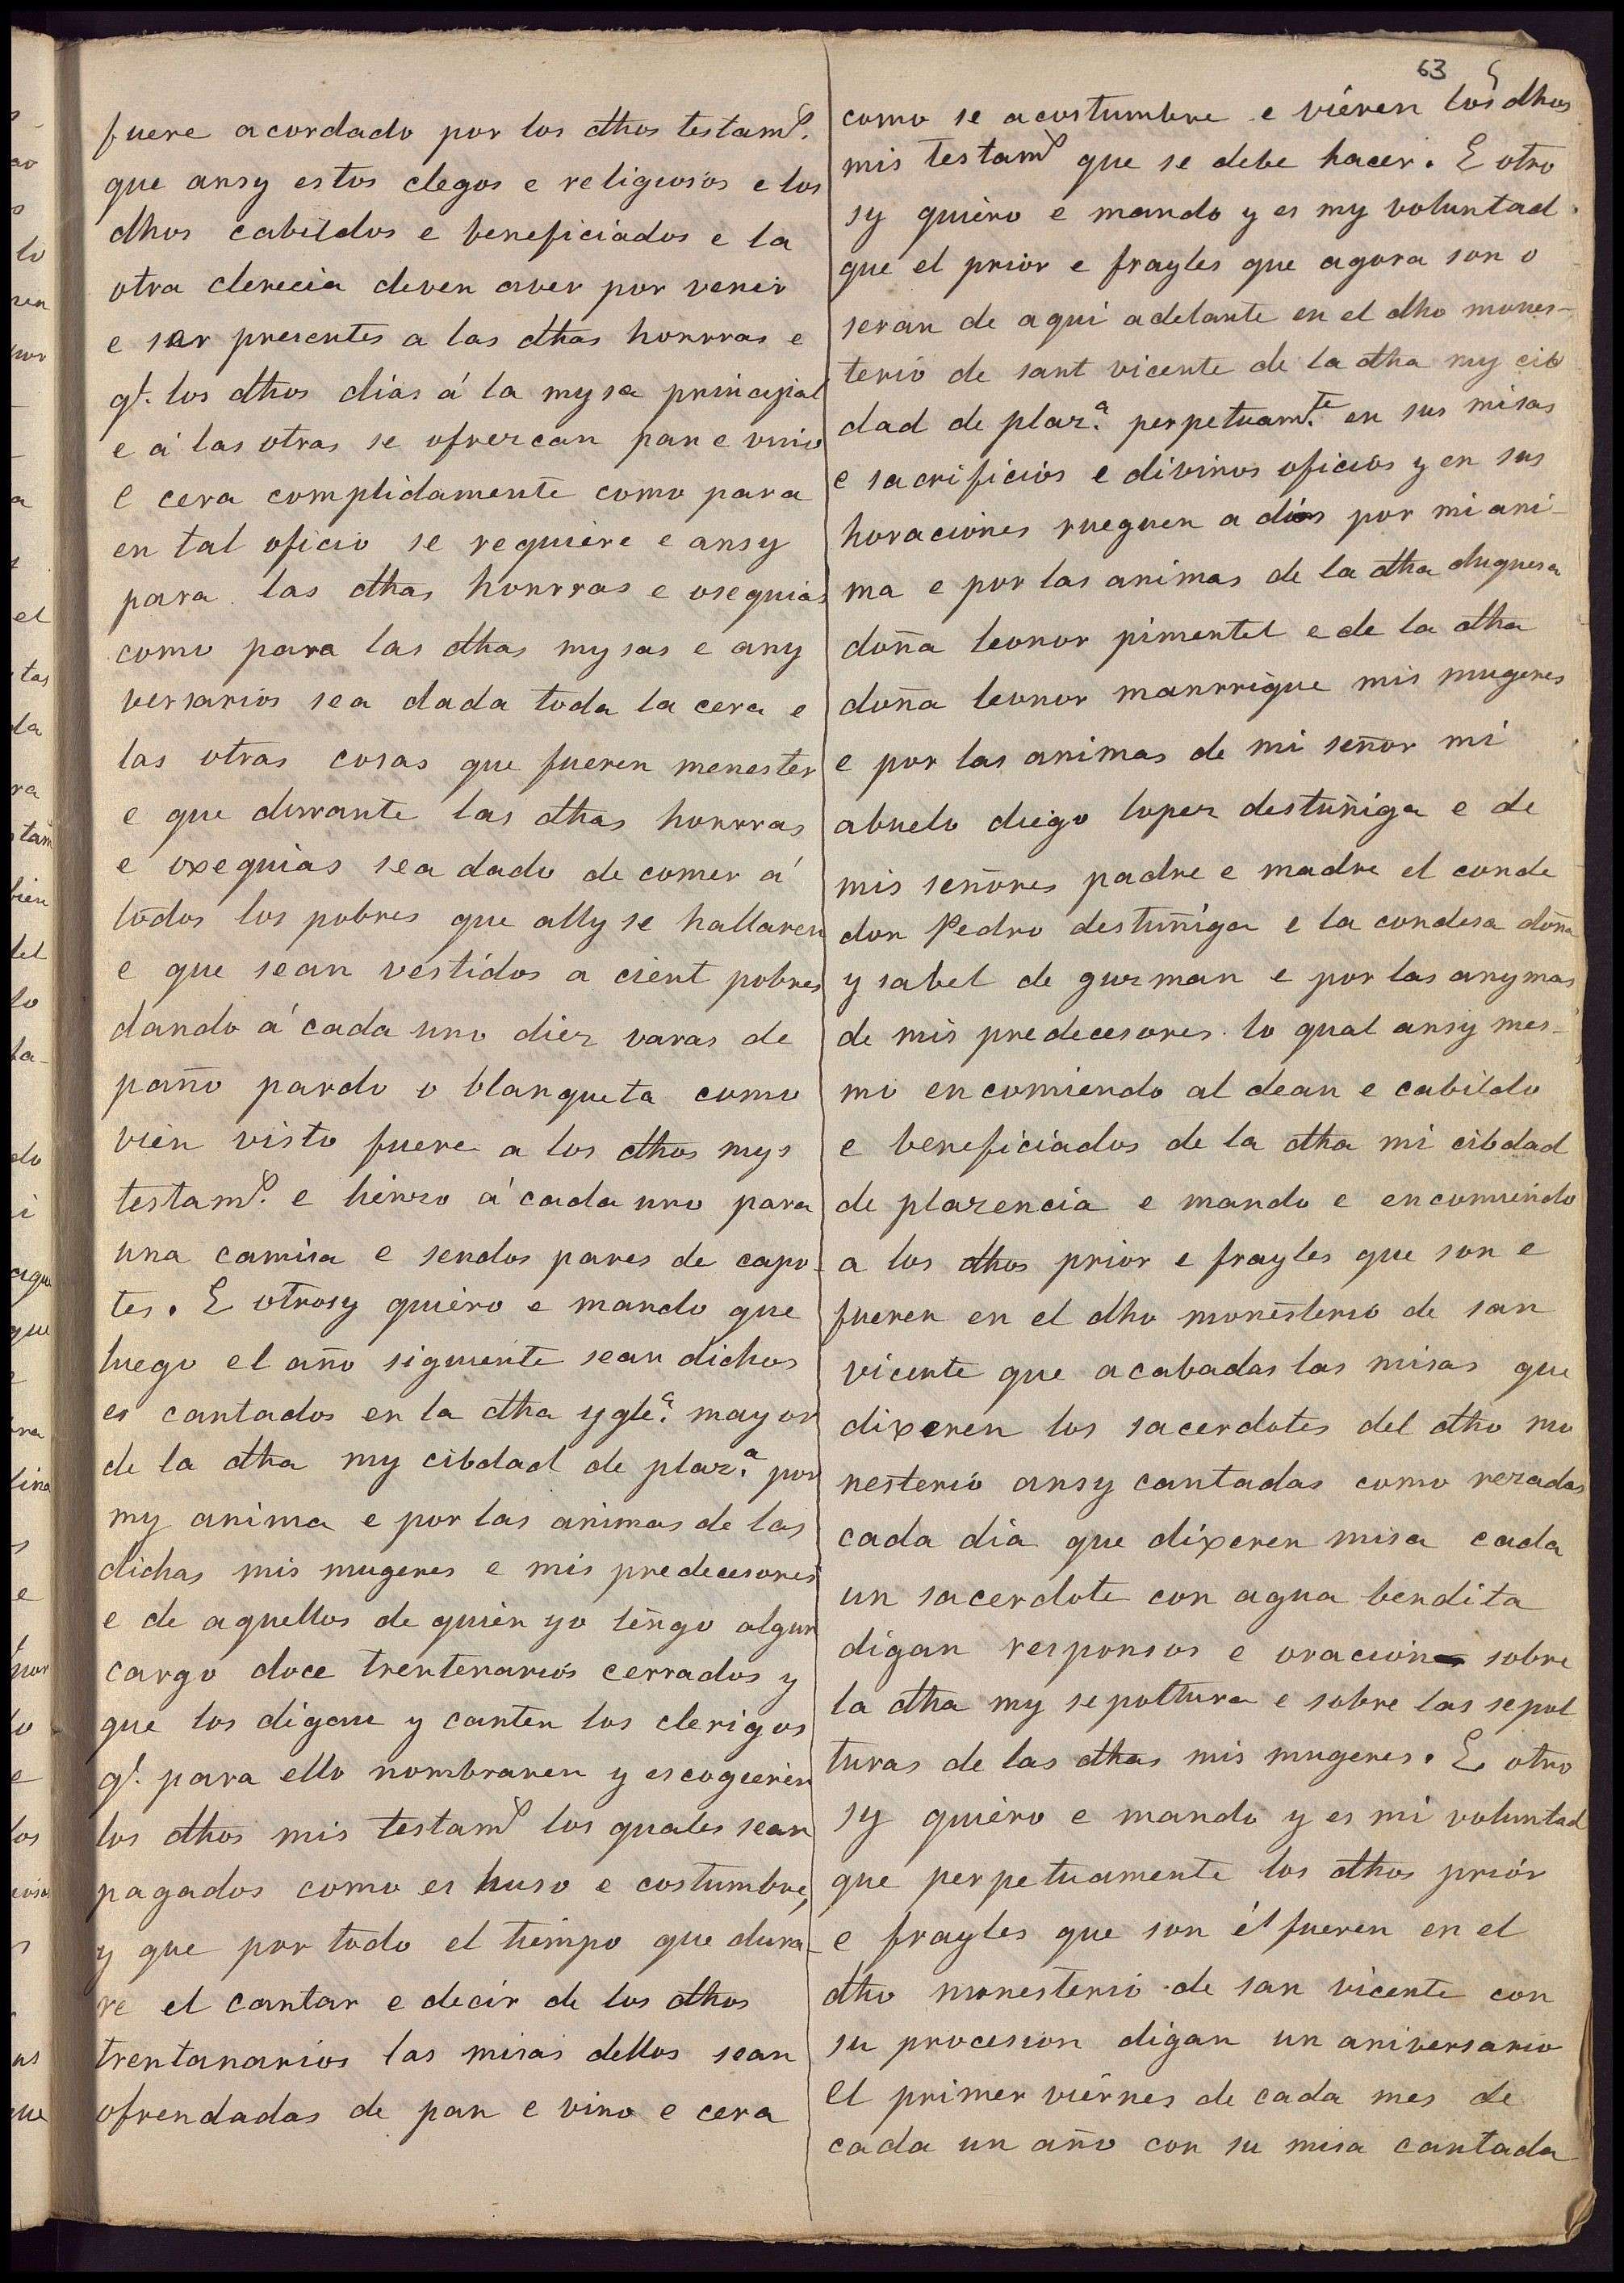 63
fuere acordado por los dhos testamos.
que ansy estos clegos e religiosos e los
dhos cabildos e beneficiados e la
otra clerecia deven aver por venir
e ser presentes a las dhas honrras e
q.e los dhos dias á la mysa principal
e á las otras se ofrezcan pan e vino
e cera complidamente como para
en tal oficio se requiere e ansy
para las dhas honrras e osequias
como para las dhas mysas e any
versarios sea dada toda la cera e
las otras cosas que fueren menester
e que durante las dhas honrras
e oxequias sea dado de comer á
todos los pobres que ally se hallaren
e que sean vestidos a cient pobres
dando á cada uno diez varas de
paño pardo o blanqueta como
vien visto fuere a los dhos mys
testamos. e lienzo á cada uno para
una camisa e sendos pares de capo-
tes. E otrosy quiero e mando que
luego el año siguiente sean dichos
es cantados en la dha ygle.a mayor
de la dha my cibdad de plaz.a por
my anima e por las animas de las
dichas mis mugeres e mis predecesores
e de aquellos de quien yo tengo algun
cargo doce trentenarios cerrados y
que los digan y canten los clerigos
q.e para ello nombraren y escogieren
los dhos mis testamos los quales sean
pagados como es huso e costumbre,
y que por todo el tiempo que dura-
re el cantar e decir de los dhos
trentanarios las misas dellos sean
ofrendadas de pan e vino e cera
como se acostumbre e vieren los dhos
mis testamos que se debe hacer. E otro
sy quiero e mando y es my voluntad
que el prior e frayles que agora son o
seran de aqui adelante en el dho mones-
terio de sant vicente de la dha my cib
dad de plaz.a perpetuam.te en sus misas
e sacrificios e divinos oficios y en sus
horaciones rueguen a dios por mi ani-
ma e por las animas de la dha duquesa
doña leonor pimentel e de la dha
doña leonor manrrique mis mugeres
e por las animas de mi señor mi
abuelo diego lopez destuñiga e de
mis señores padre e madre el conde
don Pedro destuñiga e la condesa doña
ysabel de guzman e por las anymas
de mis predecesores. lo qual ansy mes-
mo encomiendo al dean e cabildo
e beneficiados de la dha mi cibdad
de plazencia e mando e encomiendo
a los dhos prior e frayles que son e
fueren en el dho monesterio de san
vicente que acabadas las misas que
dixeren los sacerdotes del dho mo
nesterio ansy cantadas como rezadas
cada dia que dixeren misa cada
un sacerdote con agua bendita
digan responsos e oraciones sobre
la dha my sepoltura e sobre las sepol
turas de las dhas mis mugeres. E otro
sy quiero e mando y es mi voluntad
que perpetuamente los dhos priór
e frayles que son é fueren en el
dho monesterio de san vicente con
su procesion digan un aniversario
el primer viernes de cada mes de
cada un año con su misa cantada